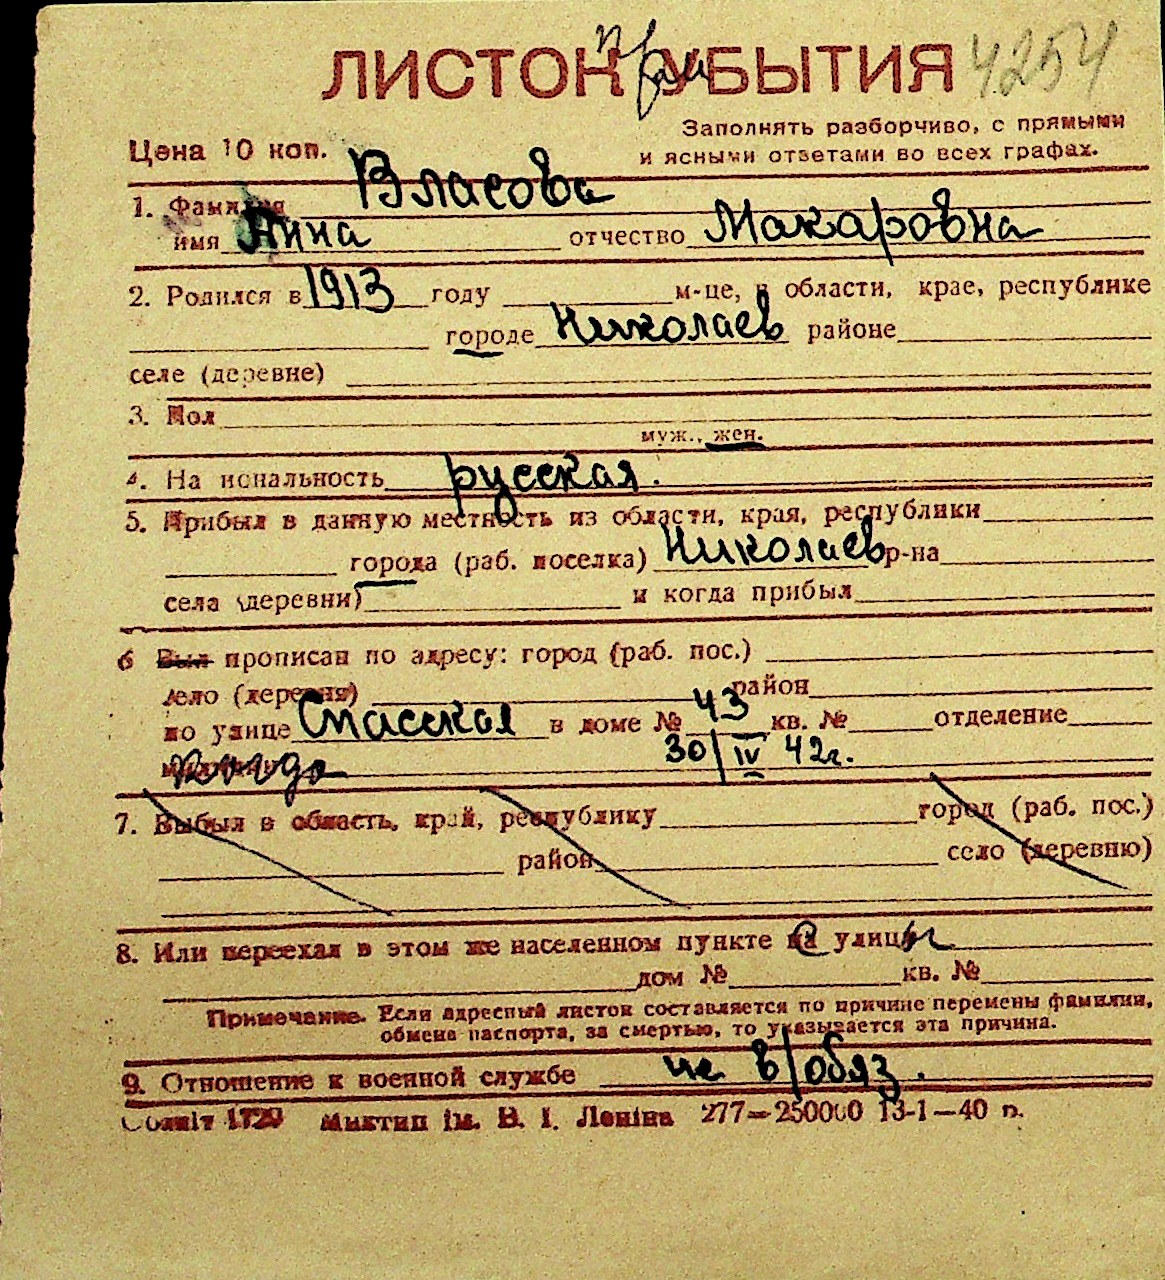 ЛИСТОК УБЫТИЯ 4254
Заполнять разборчиво, с прямыми
Цена 10 коп. и ясными ответами во всех графах.
1. Фамилия Власова
имя Анна отчество Макаровна
2. Родился в 1913 году м-це, в области, крае, республике
городе Николаев районе
селе (деревне)
3. Пол
муж., жен.
4. Национальность русская.
5. Прибыл в данную местность из области, края, республики
города (раб. поселка) Николаев р-на
села (деревни) и когда прибыл
6 Был прописан по адресу: город (раб. пос.)
село (деревня) район
по улице Спасская в доме № 43 кв. № отделение
когда 30/IV 42г.
7. Выбыл в область, край, республику город (раб. пос.)
район село (деревню)
8. Или переехал в этом же населенном пункте с улицы
дом № кв. №
Примечание. Если адресный листок составляется по причине перемены фамилии,
обмена паспорта, за смертью, то указывается эта причина.
9. Отношение к военной службе не в/обяз.
1729 Миктип ім. В. І. Леніна 277—250000 13-1—40 п.